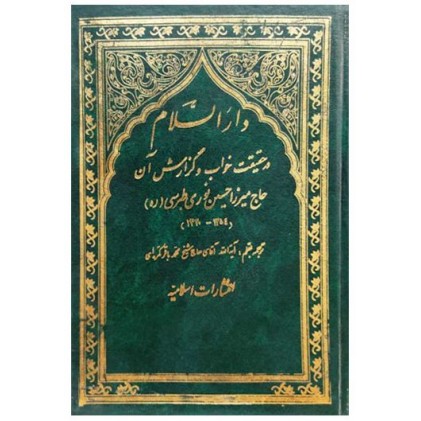 دار السلام
در حقیقت خواب و گزارش آن
حاج میرزا حسین نوری طبرسی (ره)
(۱۲۵۴ - ۱۳۲۰)
ترجمه بقلم: آیة الله آقای حاج شیخ محمد باقر کمره‌ای
انتشارات اسلامیه